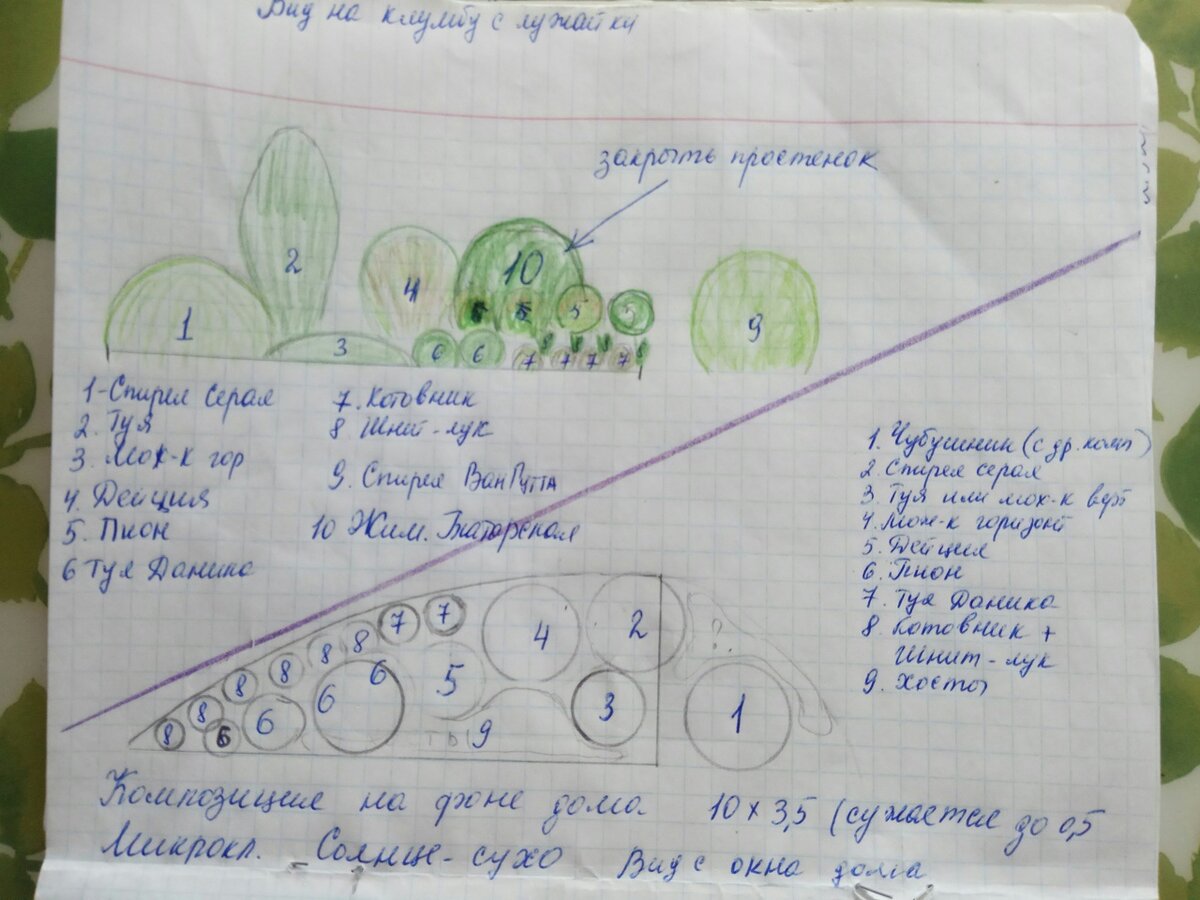 Вид на клумбу с лужайки
закрыть простенок
2
10
4
1
9
5 5 5 5
3
6 6
8 8 8 8
7 7 7 7
1-Спирея Серая
2. Туя
3. Мож-к гор
4. Дейция
5. Пион
6 Туя Даника
7. Котовник
8 Шнит-лук
9. Спирея ВанГутта
10 Жим. Татарская
1. Чубушник (с др. комп)
2. Спирея серая
3. Туя или мож-к верт
4. Мож-к горизонт
5. Дейция
6. Пион
7. Туя Даника
8. Котовник +
Шнит-лук
9. Хосты
7 7
4 2 ?
8 8 8 8 8 8
6 6 5
3 1
6 6
ты 9
Композиция на фоне дома 10 х 3,5 (сужается до 0,5
Микрокл. - Солнце-сухо Вид с окна дома